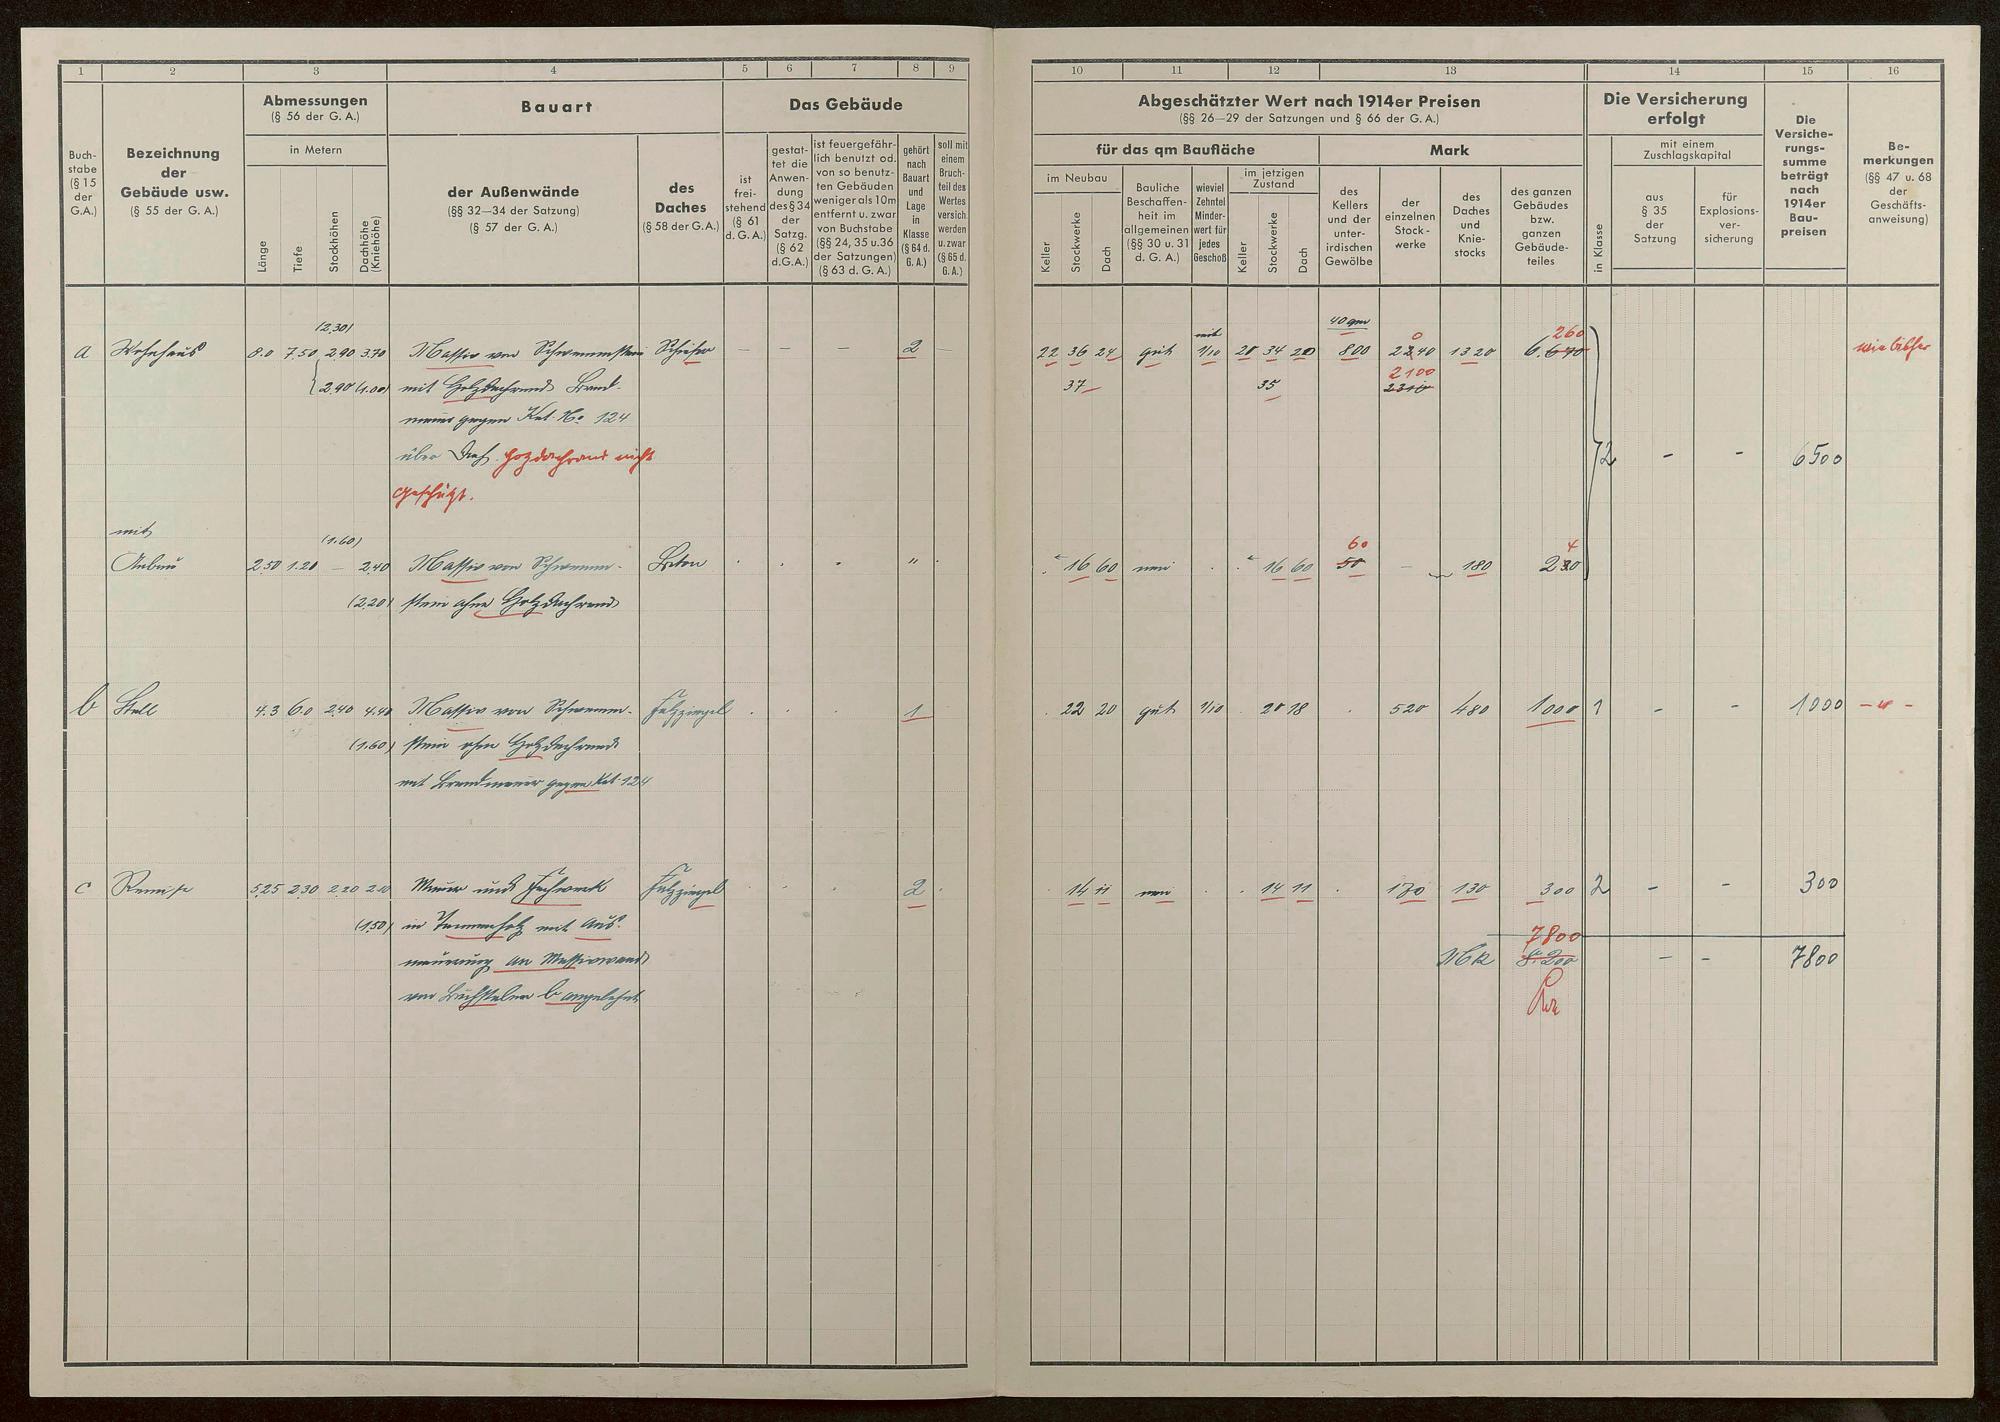 1 2 3 4 5 6 7 8 9
Buch-
stabe
(§ 15
der
G.A.)
Bezeichnung
der
Gebäude usw.
(§ 55 der G. A.)
Abmessungen
(§ 56 der G. A.)
in Metern
Länge
Tiefe
Stockhöhen
Dachhöhe
(Kniehöhe)
Bauart
der Außenwände
(§§ 32—34 der Satzung)
(§ 57 der G. A.)
des
Daches
(§ 58 der G.A.)
Das Gebäude
ist
frei-
stehend
(§ 61
d. G. A.)
gestat-
tet die
Anwen-
dung
des § 34
der
Satzg.
(§ 62
d.G.A.)
ist feuergefähr-
lich benutzt od.
von so benutz-
ten Gebäuden
weniger als 10m
entfernt u. zwar
von Buchstabe
(§§ 24, 35 u.36
der Satzungen)
(§ 63 d. G. A.)
gehört
nach
Bauart
und
Lage
in
Klasse
(§ 64 d.
G. A.)
soll mit
einem
Bruch-
teil des
Wertes
versich.
werden
u. zwar
(§ 65 d.
G. A.)
(2.30)
a Wohnhaus 8.0 7.50 2.90 3.70 Massiv von Schwemmstein Schiefer — — — 2 —
2.90 (1.00) mit Holzdachrand Brand-
mauer gegen Kat. No 124
über Dach. Holzdachrand nicht
geschützt.
mit (1.60)
Anbau 2.50 1.20 — 2.40 Massiv von Schwemm- Beton "
(2.20) stein ohne Holzdachrand
b Stall 4.3 6.0 2.40 4.40 Massiv von Schwemm- Falzziegel 1
(1.60) stein ohne Holzdachrand
mit Brandmauer gegen Kat. 124
c Remise 5.25 2.30 2.20 2.10 Mauer und Fachwerk Falzziegel 2
(1.50) in Tannenholz mit Aus-
mauerung an Massivwand
von Buchstaben b angelehnt
10 11 12 13 14 15 16
Abgeschätzter Wert nach 1914er Preisen
(§§ 26—29 der Satzungen und § 66 der G. A.)
für das qm Baufläche
im Neubau
Keller
Stockwerke
Dach
Bauliche
Beschaffen-
heit im
allgemeinen
(§§ 30 u. 31
d. G. A.)
wieviel
Zehntel
Minder-
wert für
jedes
Geschoß
im jetzigen
Zustand
Keller
Stockwerke
Dach
Mark
des
Kellers
und der
unter-
irdischen
Gewölbe
der
einzelnen
Stock-
werke
des
Daches
und
Knie-
stocks
des ganzen
Gebäudes
bzw.
ganzen
Gebäude-
teiles
Die Versicherung
erfolgt
in Klasse
mit einem
Zuschlagskapital
aus
§ 35
der
Satzung
für
Explosions-
ver-
sicherung
Die
Versiche-
rungs-
summe
beträgt
nach
1914er
Bau-
preisen
Be-
merkungen
(§§ 47 u. 68
der
Geschäfts-
anweisung)
40 qm
0 260
22 36 24 gut 1/10 20 34 20 800 2240 1320 6.670 wie bisher
2100
37 35 2310
2 - - 6500
60 4
16 60 neu 16 60 50 — 180 230
22 20 gut 1/10 20 18 520 480 1000 1 - - 1000 - " -
14 11 neu 14 11 170 130 300 2 - - 300
7800
Mk 8.200 - - 7800